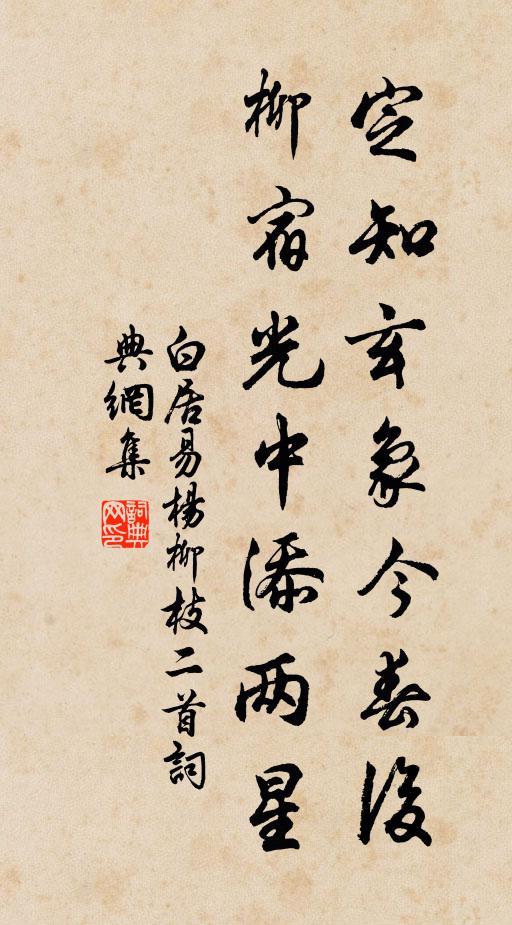 定知玄象今春後
柳宿光中添兩星
白居易楊柳枝二首詞
典網集
詞典網印